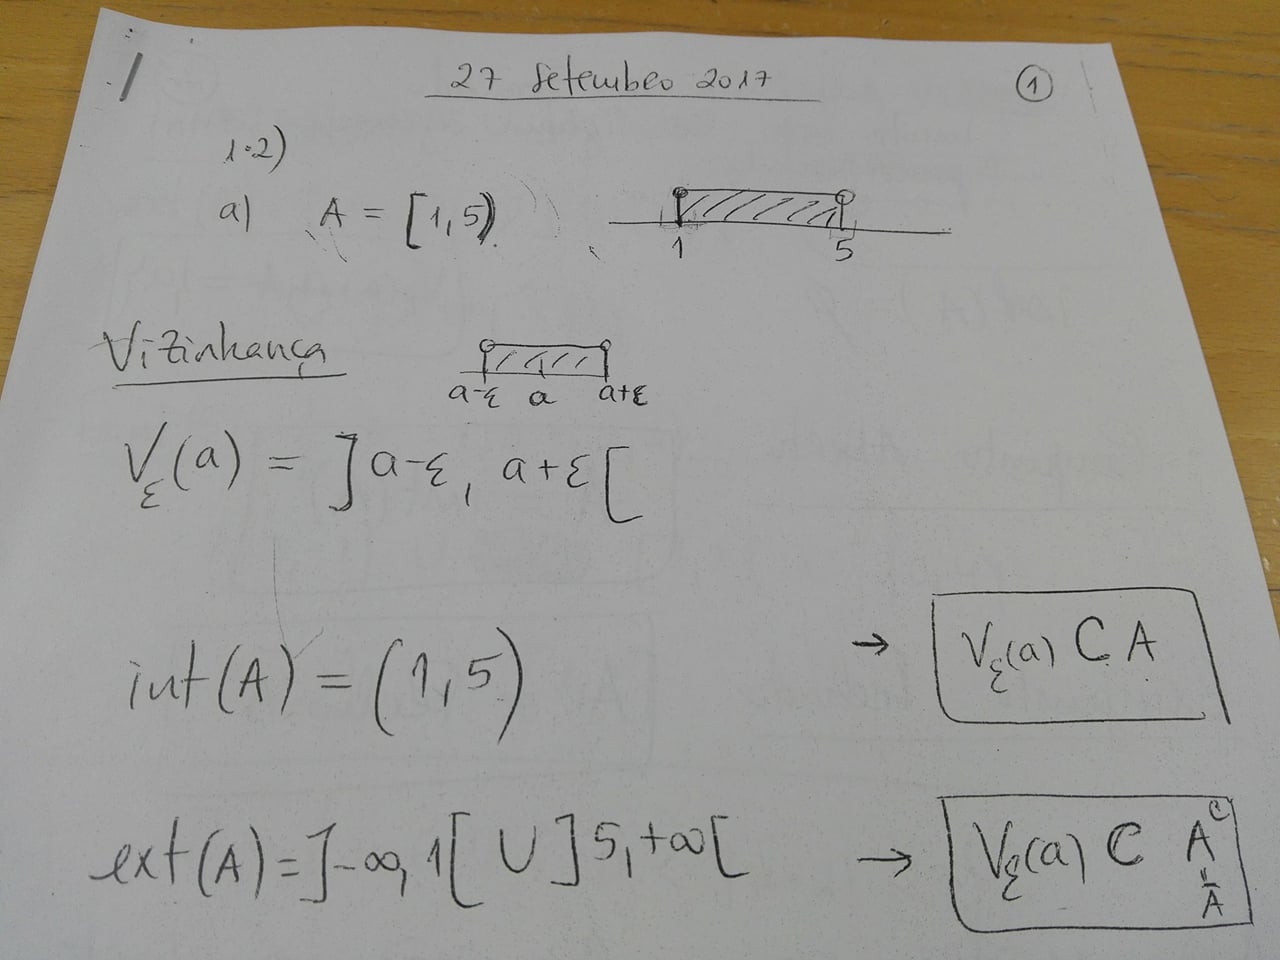 27 Setembro 2017
1
1.2)
a) A = [1,5)
1 5
Vizinhança
a-ε a a+ε
Vε(a) = ]a-ε, a+ε[
int(A) = (1,5) → Vε(a) ⊂ A
ext(A) = ]-∞, 1[ ∪ ]5, +∞[ → Vε(a) ⊂ Aᶜ
" Ā